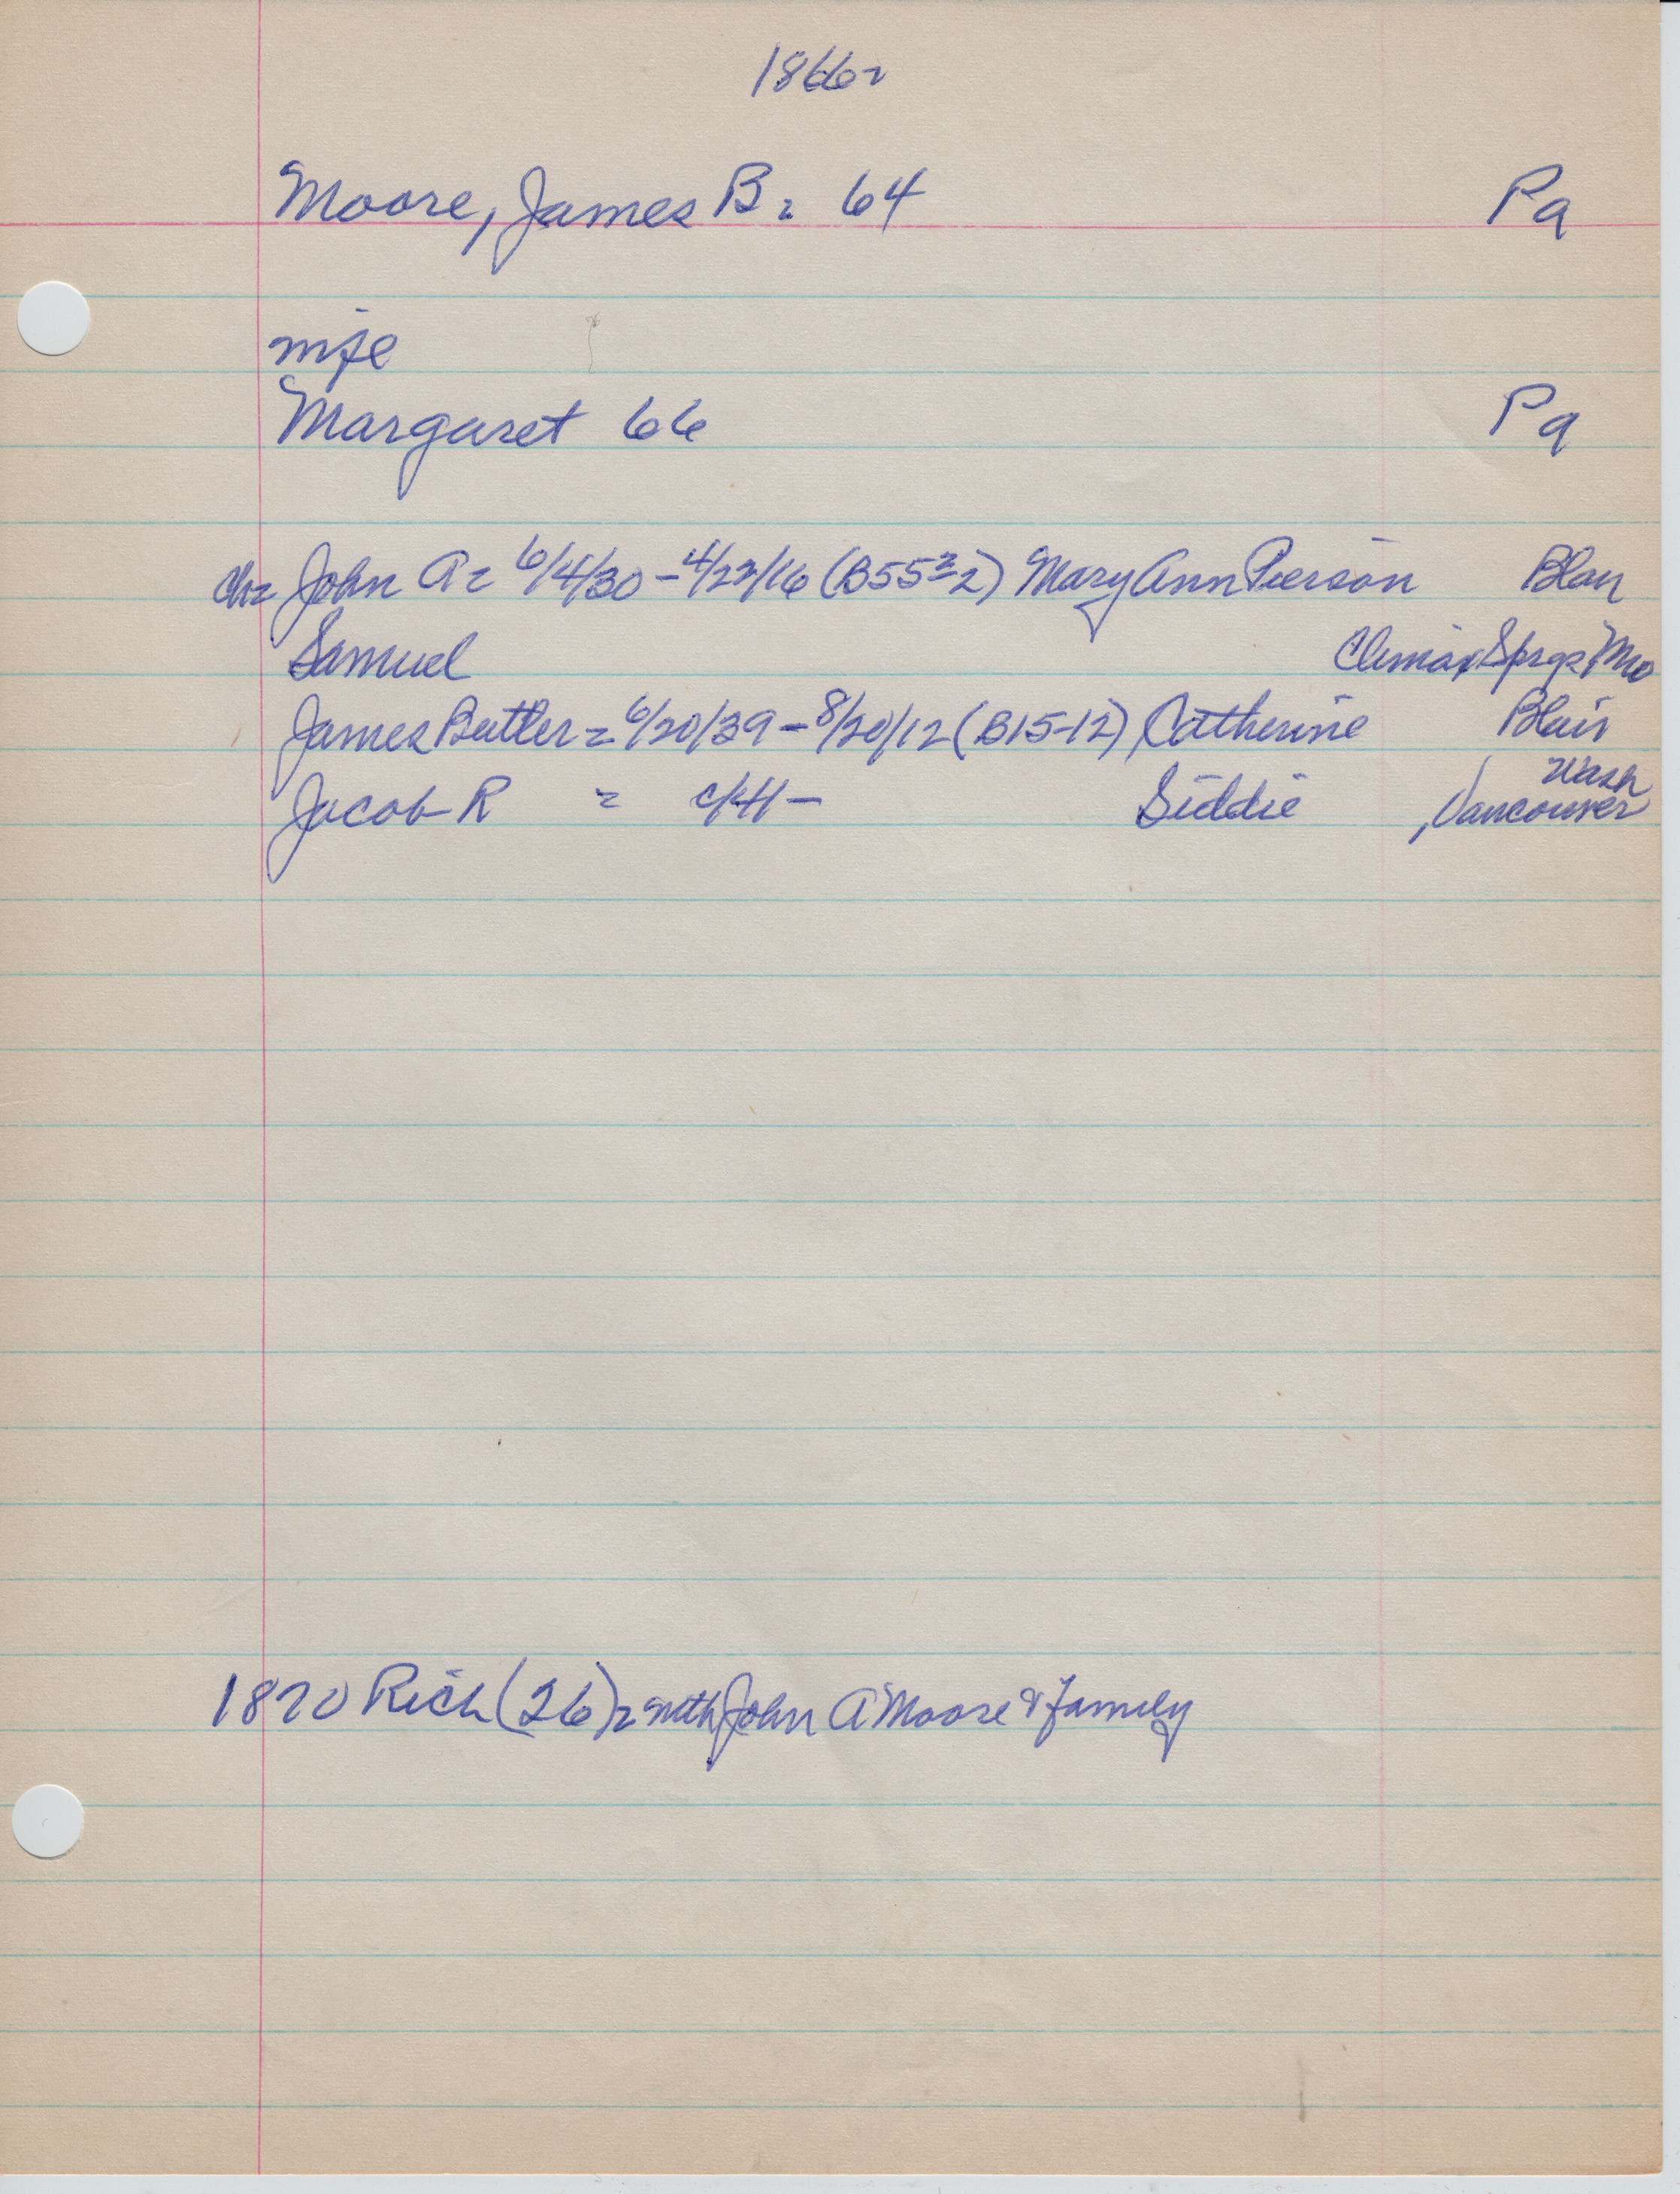 1866=
Moore, James B = 64 Pa
wife
Margaret 66 Pa
ch= John A = 6/4/30 - 4/23/16 (B55-2) Mary Ann Pierson Blair
Samuel Climax Sprgs, Mo
James Butler = 6/20/39 - 8/20/12 (B15-12) Catherine Blair
Jacob R = c/41 - Siddie Vancouver, Wash
1870 Rich (26) = with John A Moore & family